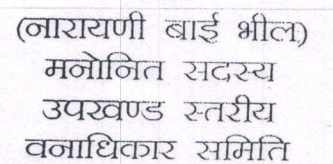 (नारायणी बाई भील)
मनोनित सदस्य
उपखण्ड स्तरीय
वनाधिकार समिति